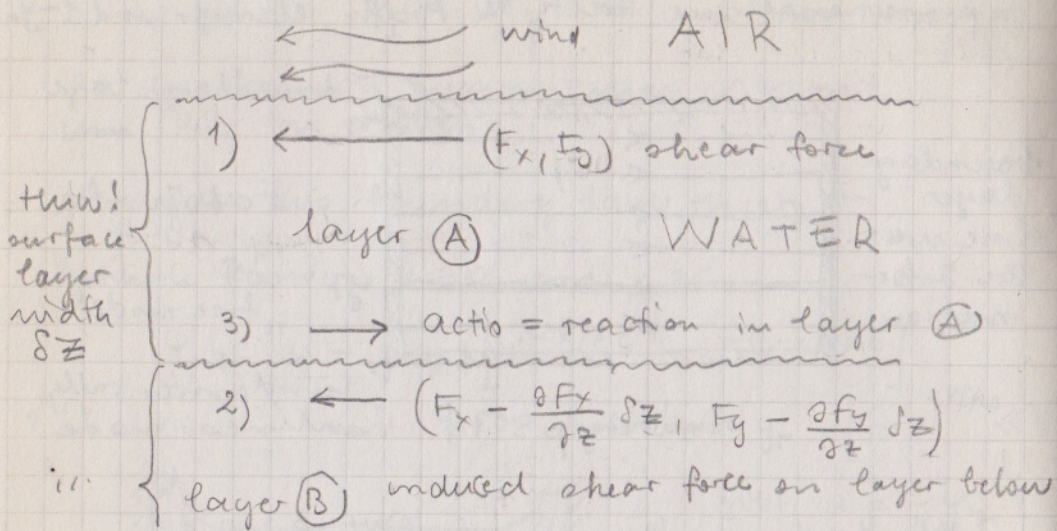 wind AIR
1) (Fx, Fy) shear force
thin!
surface
layer
width
δz
layer Ⓐ WATER
3) actio = reaction in layer Ⓐ
2) (Fx - ∂Fx/∂z δz, Fy - ∂Fy/∂z δz)
...
layer Ⓑ induced shear force on layer below